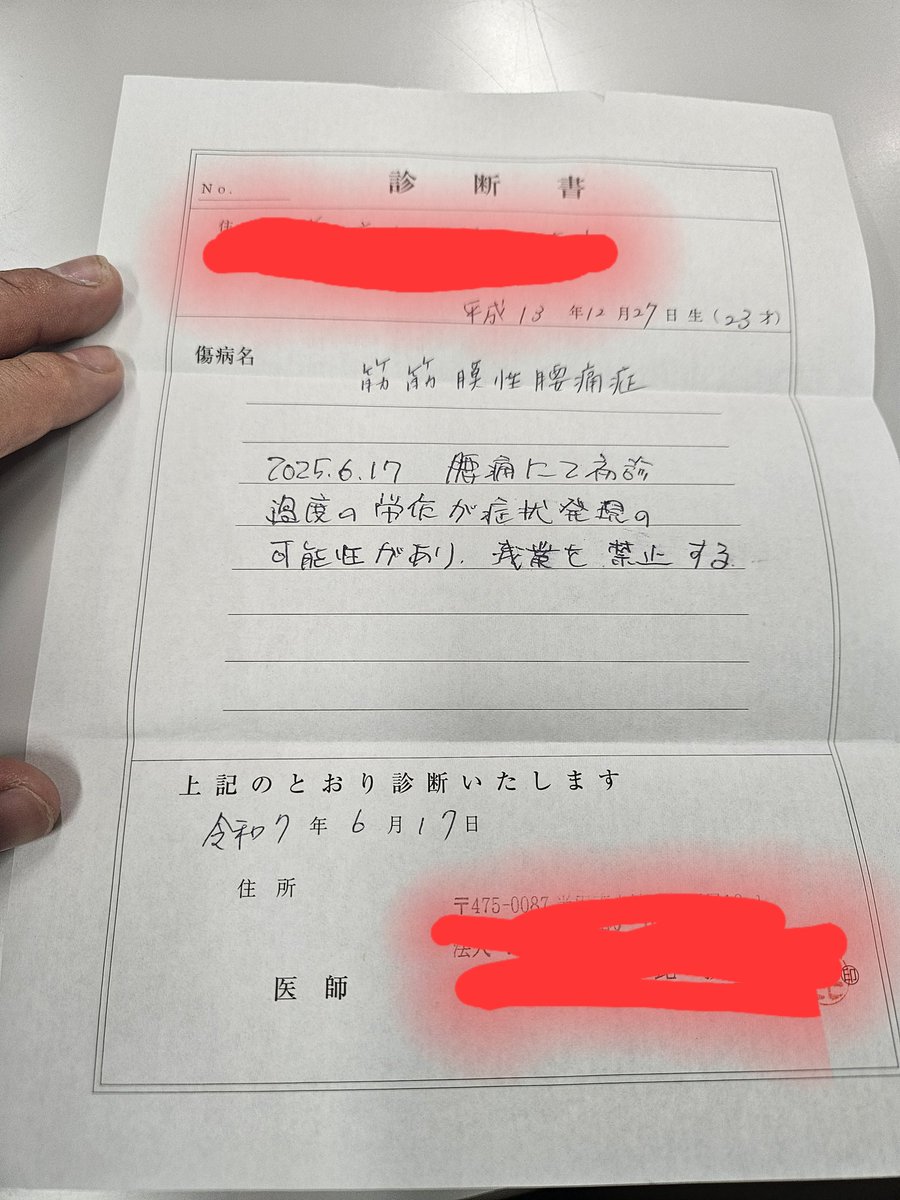 診断書
No.
平成13年12月27日生(23才)
傷病名
筋筋膜性腰痛症
2025.6.17 腰痛にて初診
過度の労作が症状発現の
可能性があり、残業を禁止する
上記のとおり診断いたします
令和7年6月17日
住所
〒475-0087
法人
医師
印